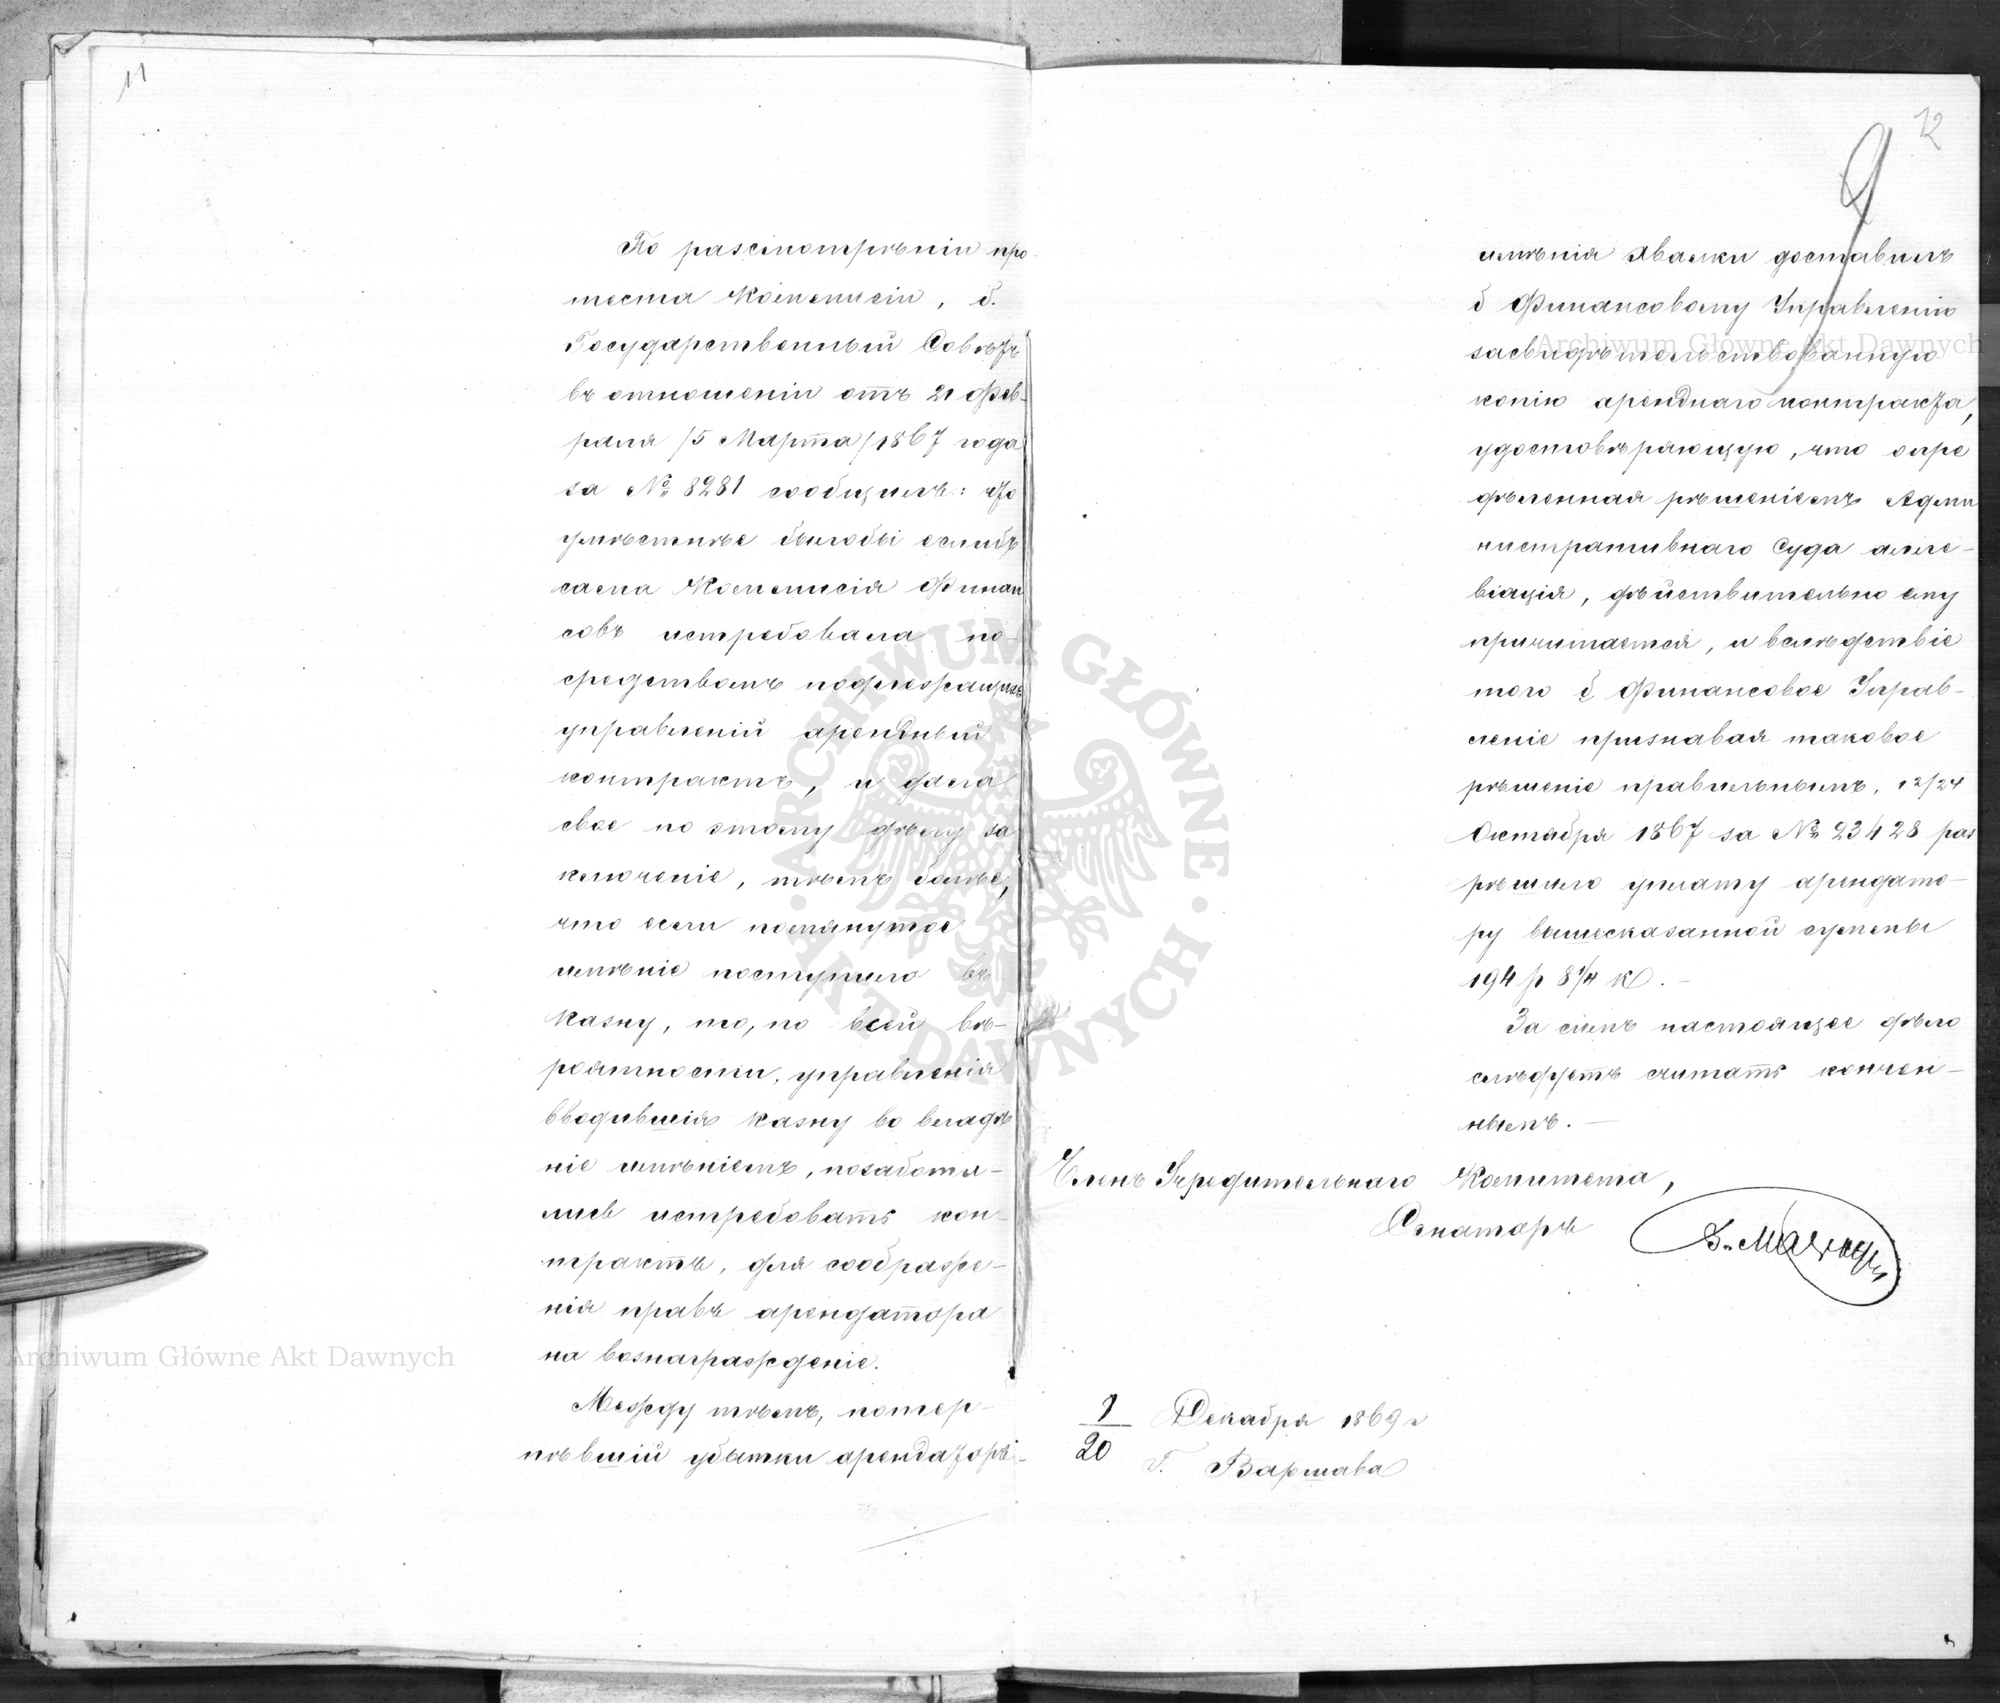 11
По разсмотрѣніи про-
теста Коммисіи, б.
Государственный Совѣтъ
въ отношеніи отъ 21 Фев-
раля /5 Марта/ 1867 года
за № 8281 сообщилъ: что
умѣстнѣе былобы еслибъ
сама Коммисія Финан
совъ истребовала по-
средствомъ подлежащихъ
управленій арендный
контрактъ, и дала
свое по этому дѣлу за
ключеніе, тѣмъ болѣе,
что если помянутое
имѣніе поступило въ
казну, то, по всей вѣ-
роятности, управленія
вводившія казну во владѣ
ніе имѣніемъ, позаботи-
лись истребовать кон-
трактъ, для соображе-
нія правъ арендатора
на вознагражденіе.
Между тѣмъ, потер-
пѣвшій убытки арендаторъ
12
9
имѣнія Хвалки доставилъ
б Финансовому Управленію
засвидѣтельствованную
копію аренднаго контракта,
удостовѣряющую, что опре
дѣленная рѣшеніемъ Адми
нистративнаго Суда алле-
віація, дѣйствительно ему
причитается, и вслѣдствіе
того б Финансовое Управ-
леніе признавая таковое
рѣшеніе правильнымъ, 12/24
Октября 1867 за № 23428 раз
рѣшило уплату арендато-
ру вышесказанной суммы
194 р 8 1/4 к. —
За симъ настоящее дѣло
слѣдуетъ считать кончен-
нымъ. —
Членъ Учредительнаго Комитета,
Сенаторъ
Декабря 1869 г
20
Г. Варшава
Archiwum Główne Akt Dawnych
Archiwum Główne Akt Dawnych
ARCHIWUM GŁÓWNE · AKT DAWNYCH ·